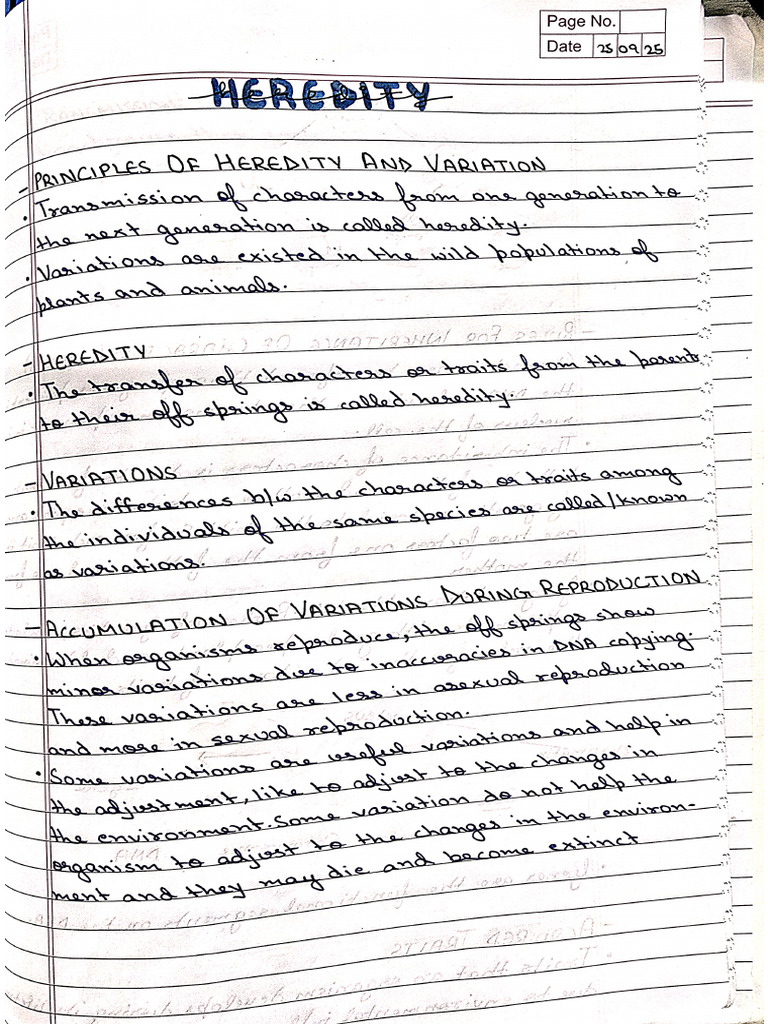 Page No.
Date 25 09 25
HEREDITY
- PRINCIPLES OF HEREDITY AND VARIATION
• Transmission of characters from one generation to
the next generation is called heredity.
• Variations are existed in the wild populations of
plants and animals.
- HEREDITY
• The transfer of characters or traits from the parents
to their off springs is called heredity.
- VARIATIONS
• The differences b/w the characters or traits among
the individuals of the same species are called/known
as variations.
- ACCUMULATION OF VARIATIONS DURING REPRODUCTION
• When organisms reproduce, the off springs show
minor variations due to inaccuracies in DNA copying.
These variations are less in asexual reproduction
and more in sexual reproduction.
• Some variations are useful variations and help in
the adjustment, like to adjust to the changes in
the environment. Some variation do not help the
organism to adjust to the changes in the environ-
ment and they may die and become extinct